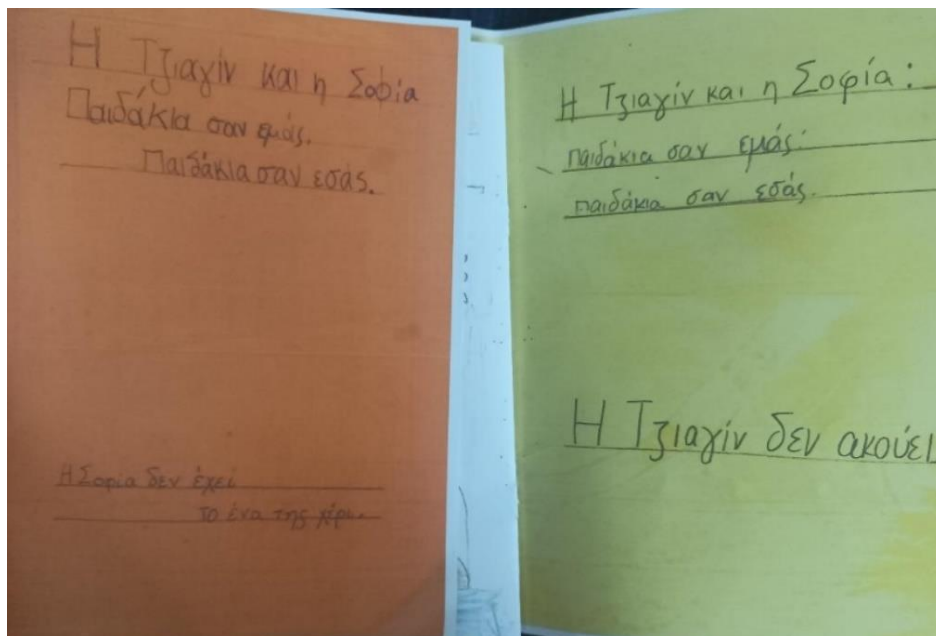 Η Τζιαγίν και η Σοφία
Παιδάκια σαν εμάς.
Παιδάκια σαν εσάς.
Η Σοφία δεν έχει
το ένα της χέρι.
Η Τζιαγίν και η Σοφία:
παιδάκια σαν εμάς.
παιδάκια σαν εσάς.
Η Τζιαγίν δεν ακούει